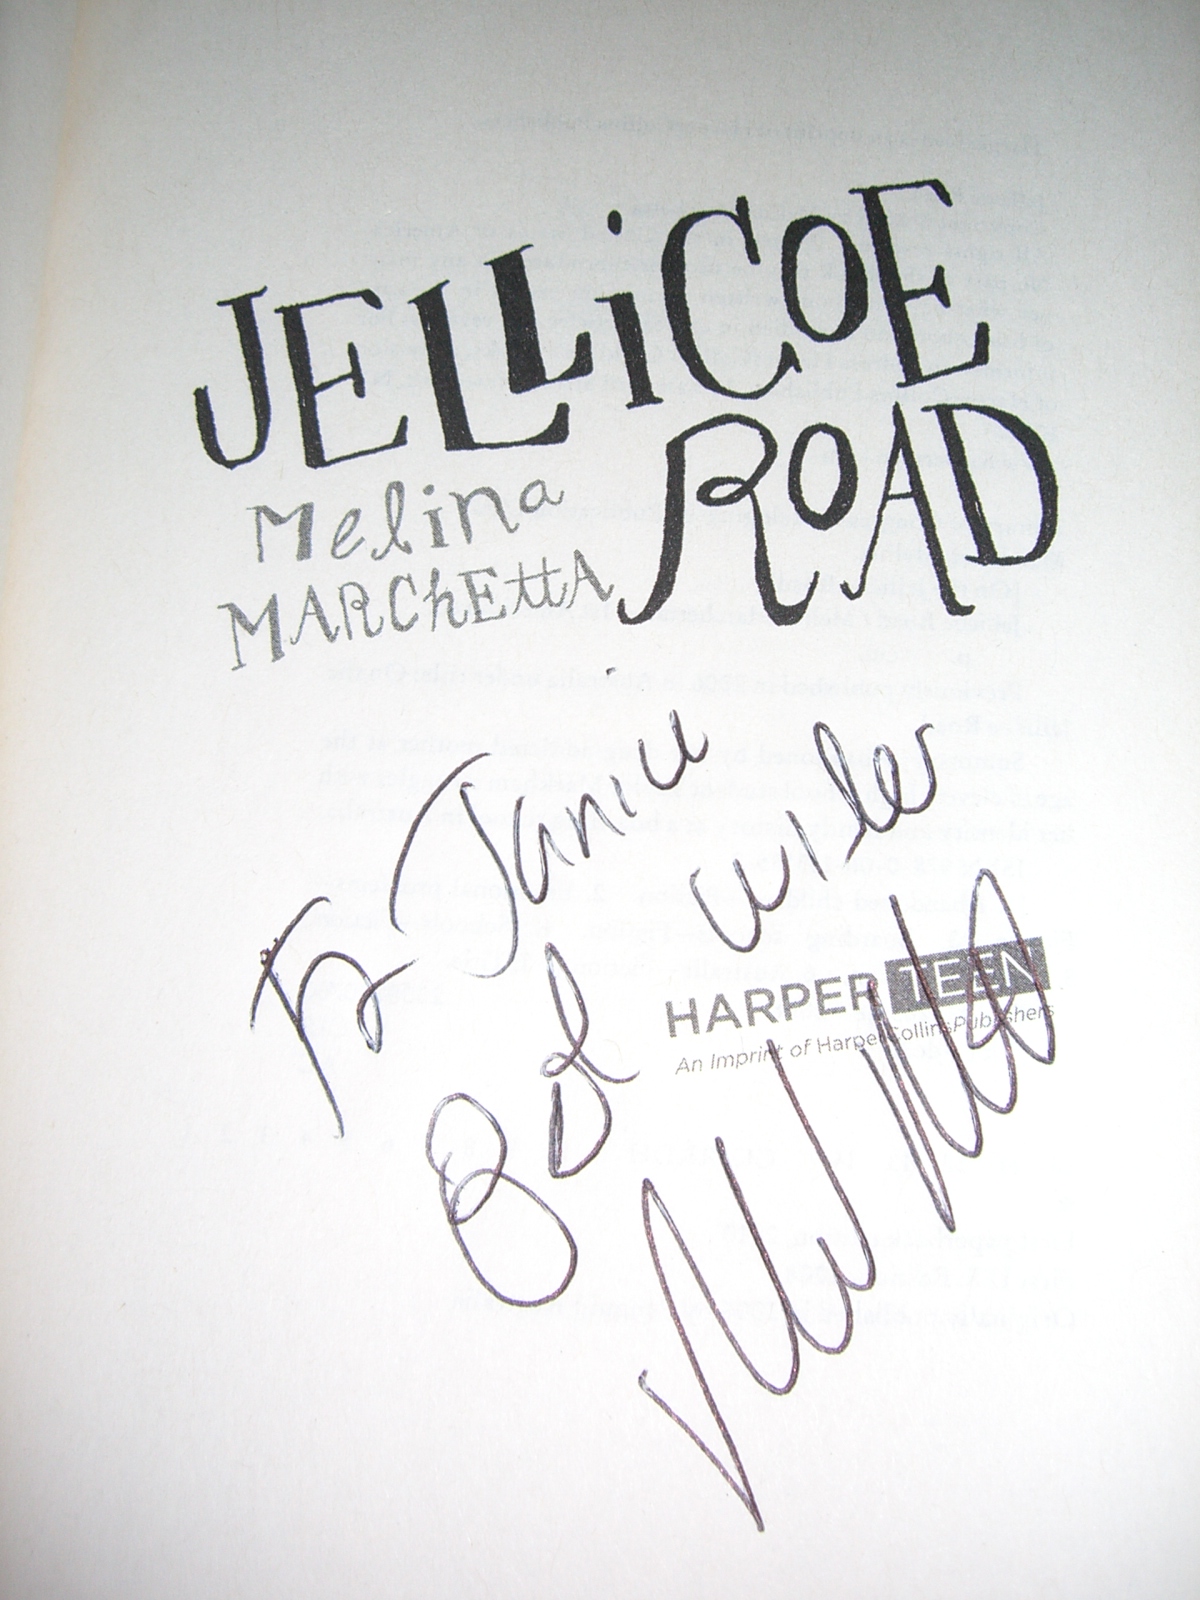 JELLiCOE
ROAD
Melina
MARChEttA
To Janice
Best wishes
HARPER TEEN
An Imprint of HarperCollinsPublishers